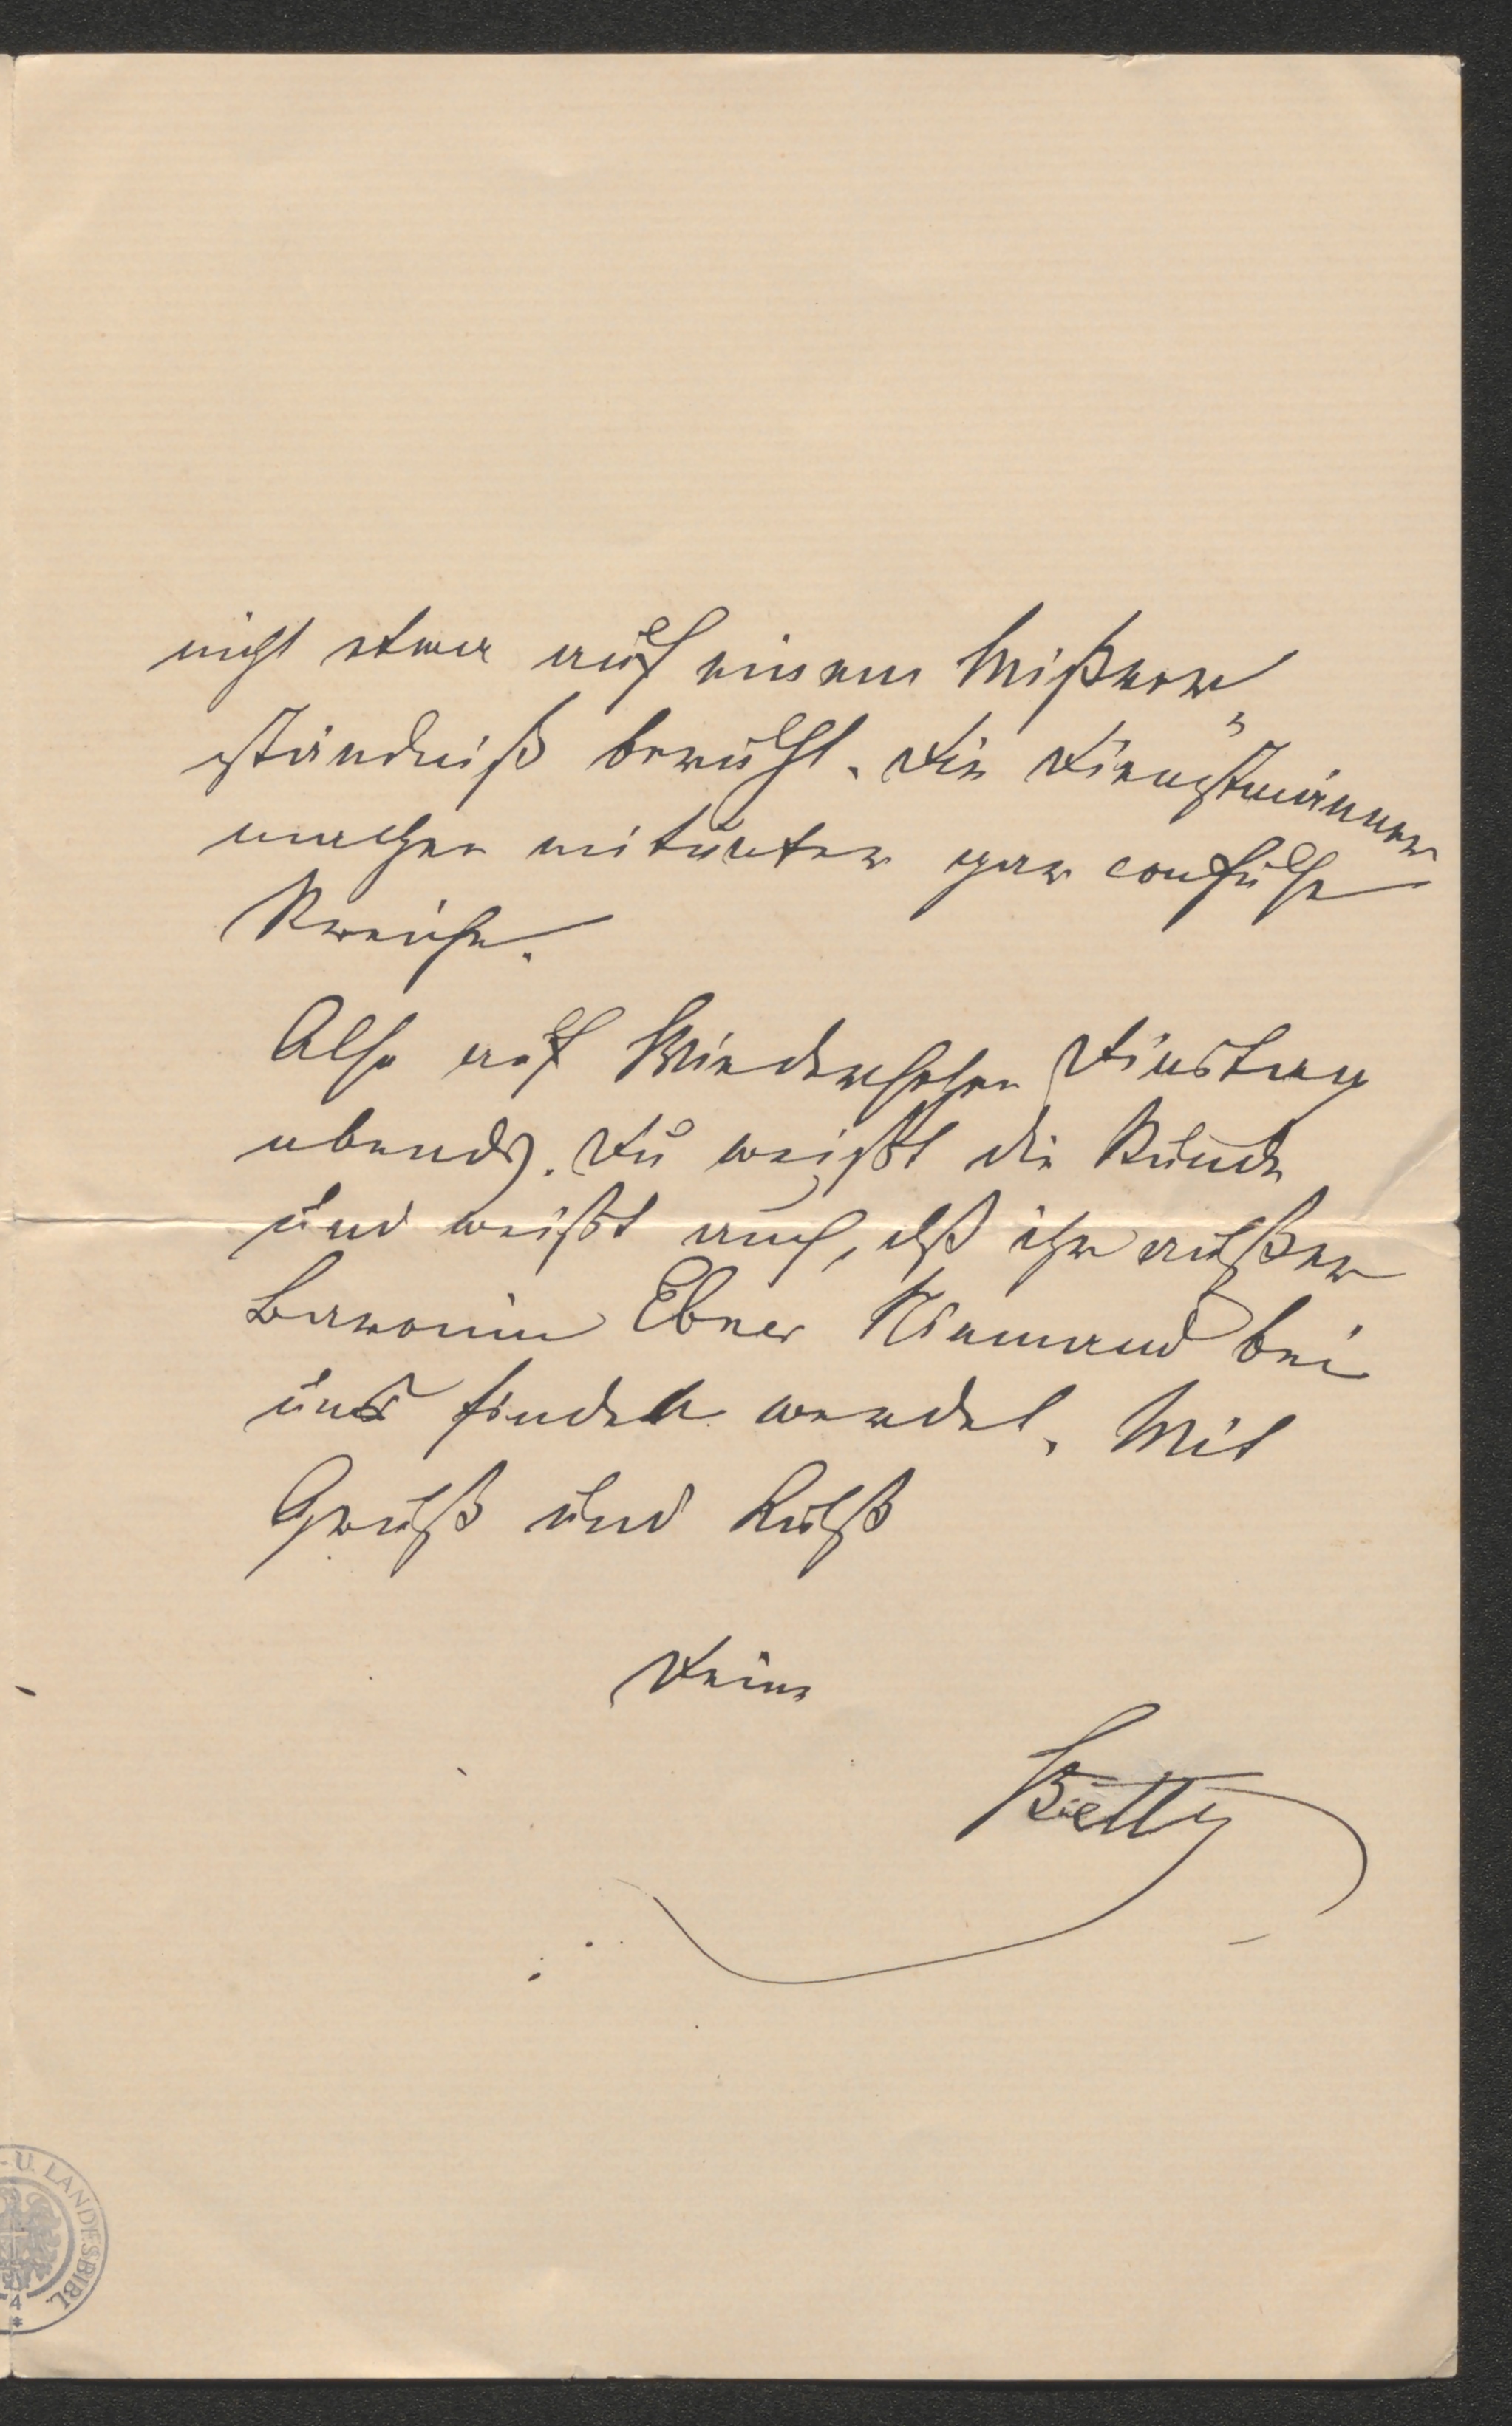 nicht etwa auf einem Mißver„
ständniß beruht. Die Dienstmänner
machen mitunter gar confuse
Streiche.
Also auf Wiedersehen Dinstag
abends. Du weißt die Stunde
und weißt auch, dß ihr außer
Baronin Ebner Niemand bei
uns finden werdet. Mit
Gruß und Kuß
Deine
Betty
- U. LANDESBIBL.
4
*